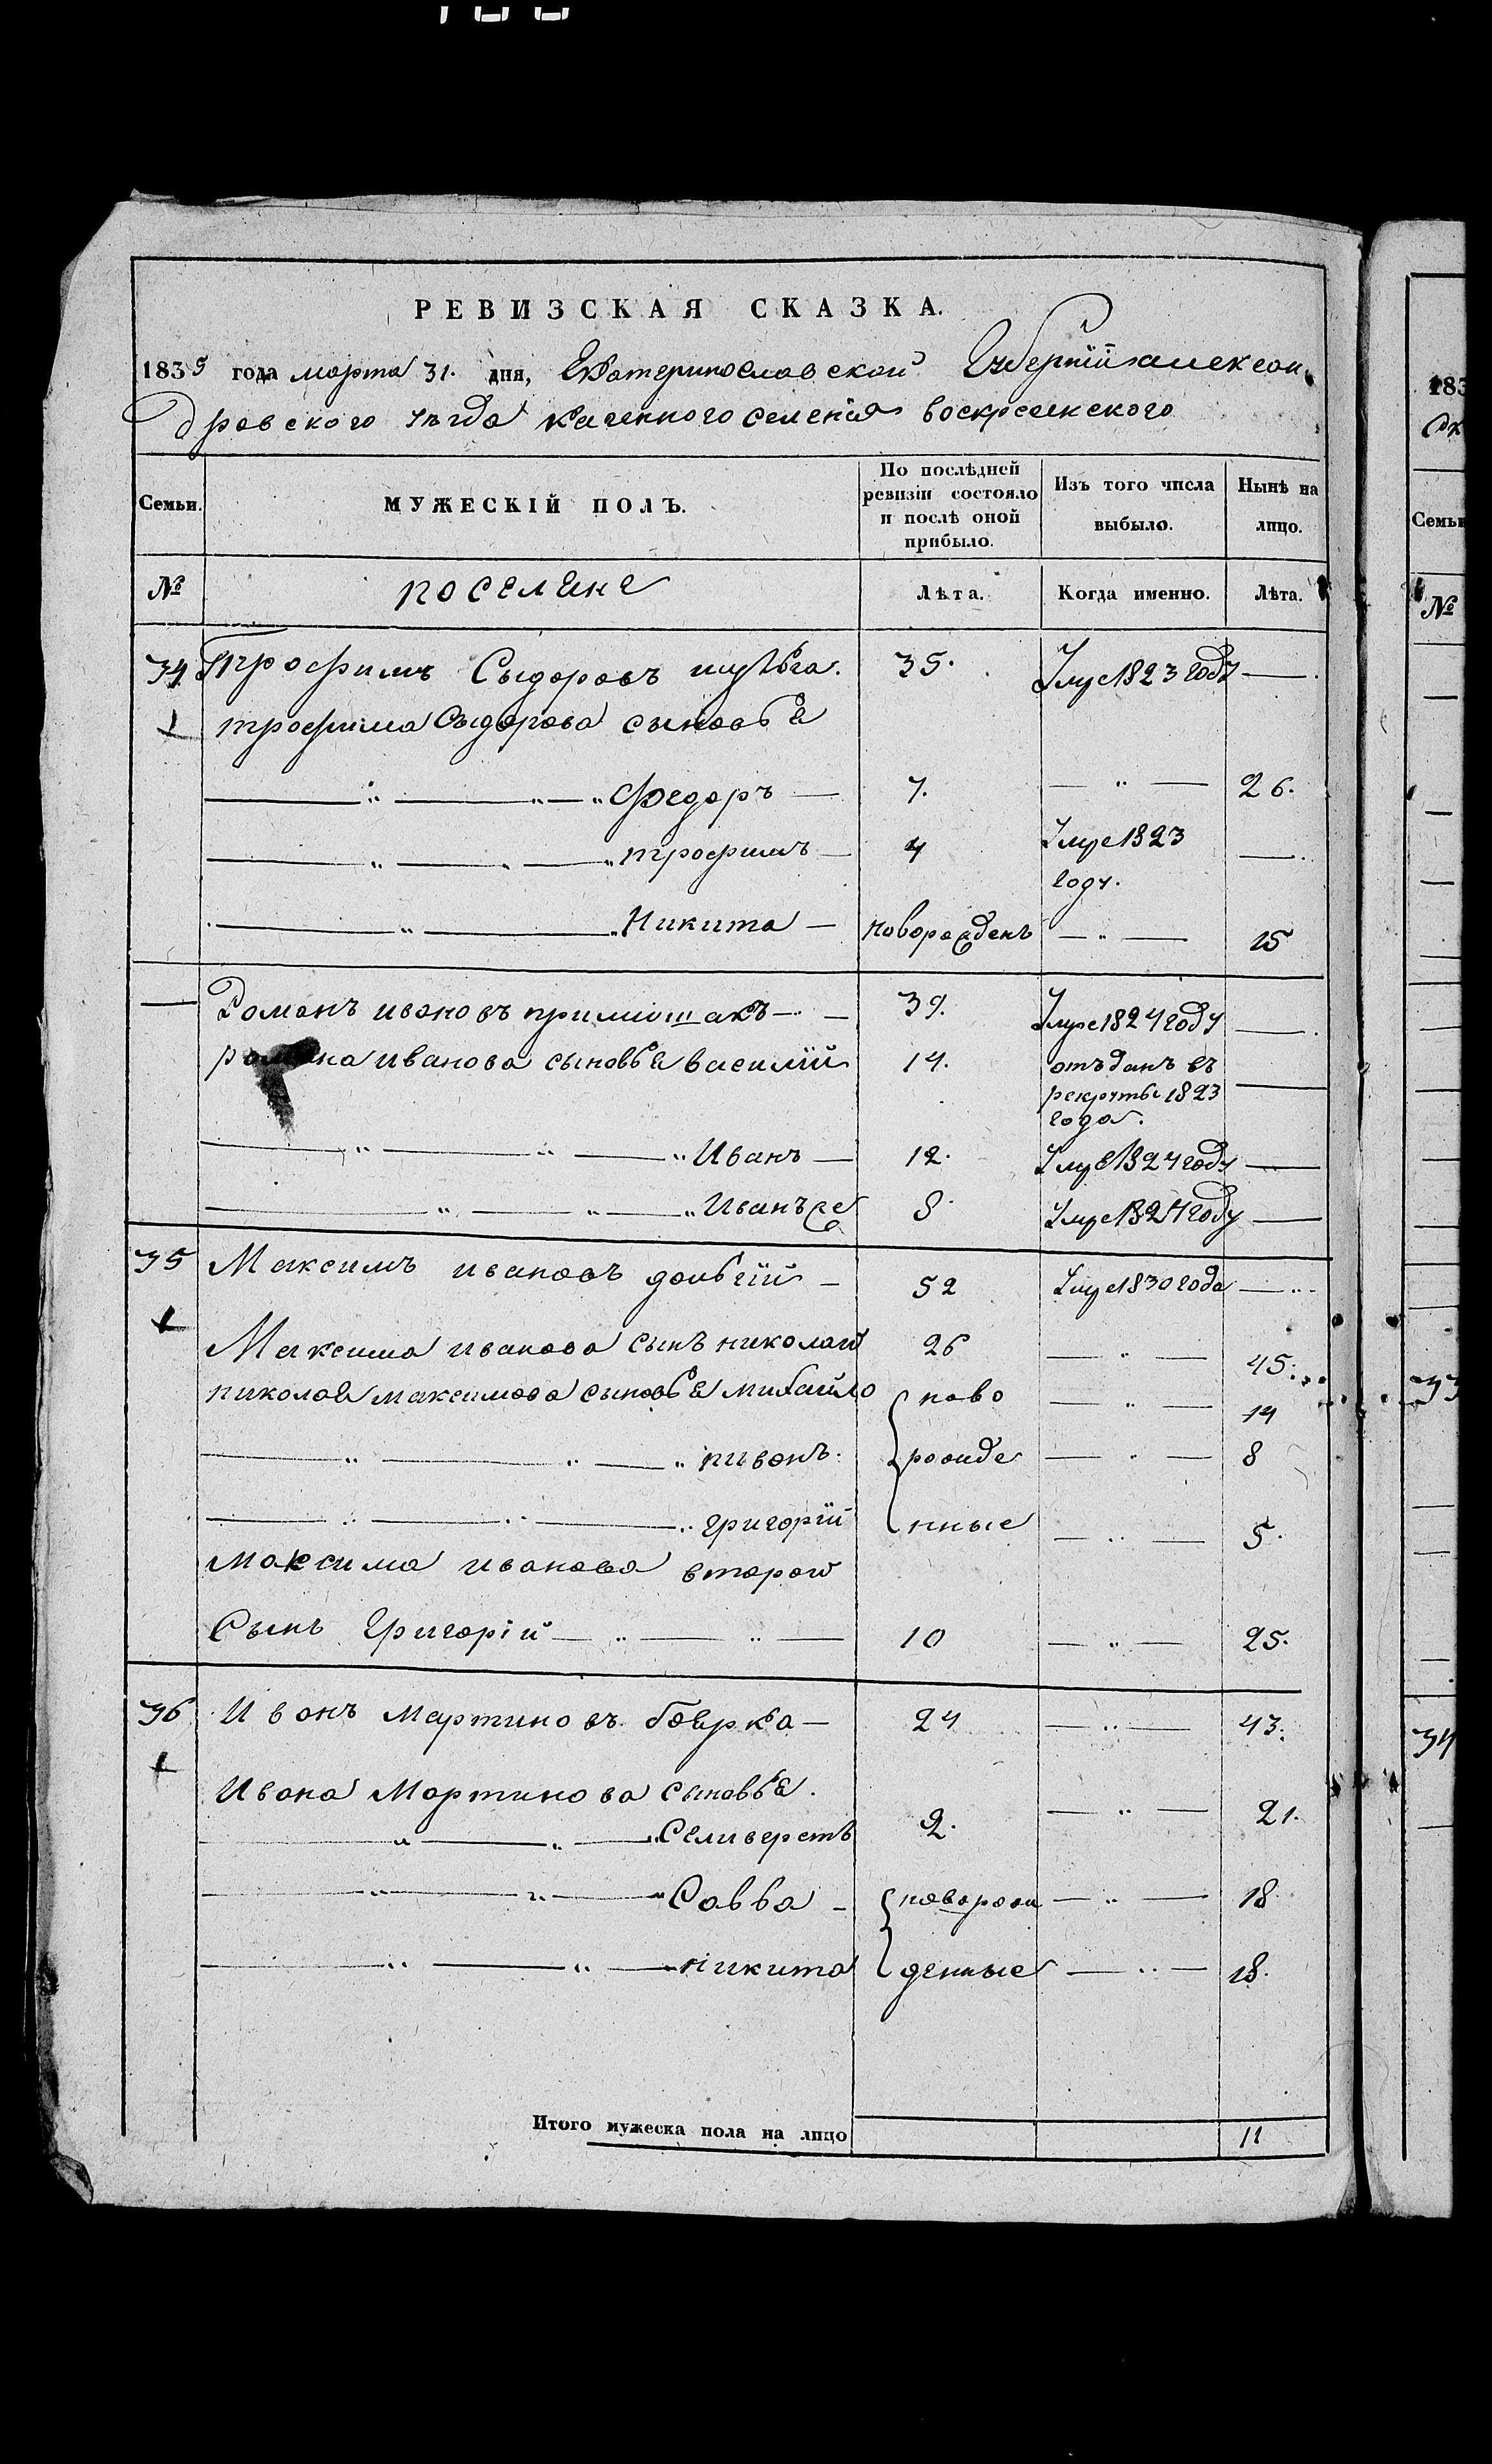 РЕВИЗСКАЯ СКАЗКА.
1835 года марта 31. дня, Екатеринославской Губернїи алексан
дровского уѣзда казенного селенїя воскресенского
Семьи. МУЖЕСКІЙ ПОЛЪ. По послѣдней ревизіи состояло и послѣ оной прибыло. Изъ того числа выбыло. Нынѣ на лицо.
№ поселяне Лѣта. Когда именно. Лѣта.
34 Трофимъ Сыдоровъ шульга. 35. Умре 1823 году —
трофима Сыдорова сыновья
— " — " — " Федоръ — 7. — " — 26.
— " — " — " трофимъ — 4 Умре 1823 году. —
— " — " Никита — новорожденъ — " — 15
— Романъ ивановъ 39. Умре 1824 году —
романа иванова сыновья василїй 14. отъданъ въ рекруты 1823 года. —
— " — " — " Иванъ — 12. Умре 1824 году —
— " — " — " Иванъ же 8. Умре 1824 году —
35 Максимъ ивановъ довгїй — 52 Умре 1830 года —
Максима иванова сынъ николай 26 — " — 45.
николая максимова сыновья михайло ново — " — 14
— " — " — " пивонъ. рожде — " — 8
— " — " — " григорїй нные — " — 5.
максима иванова второй
Сынъ Григорій — " — " — 10 — " — 25.
36 Ивонъ Мартиновъ боярка — 24 — " — 43.
Ивона Мартинова сыновья.
— " — " — " Селиверстъ 2. — " — 21.
— " — " — " Савва — новорож — " — 18
— " — " — никита денные — " — 18.
Итого мужеска пола на лицо 11
183
Семьи
№
33
34